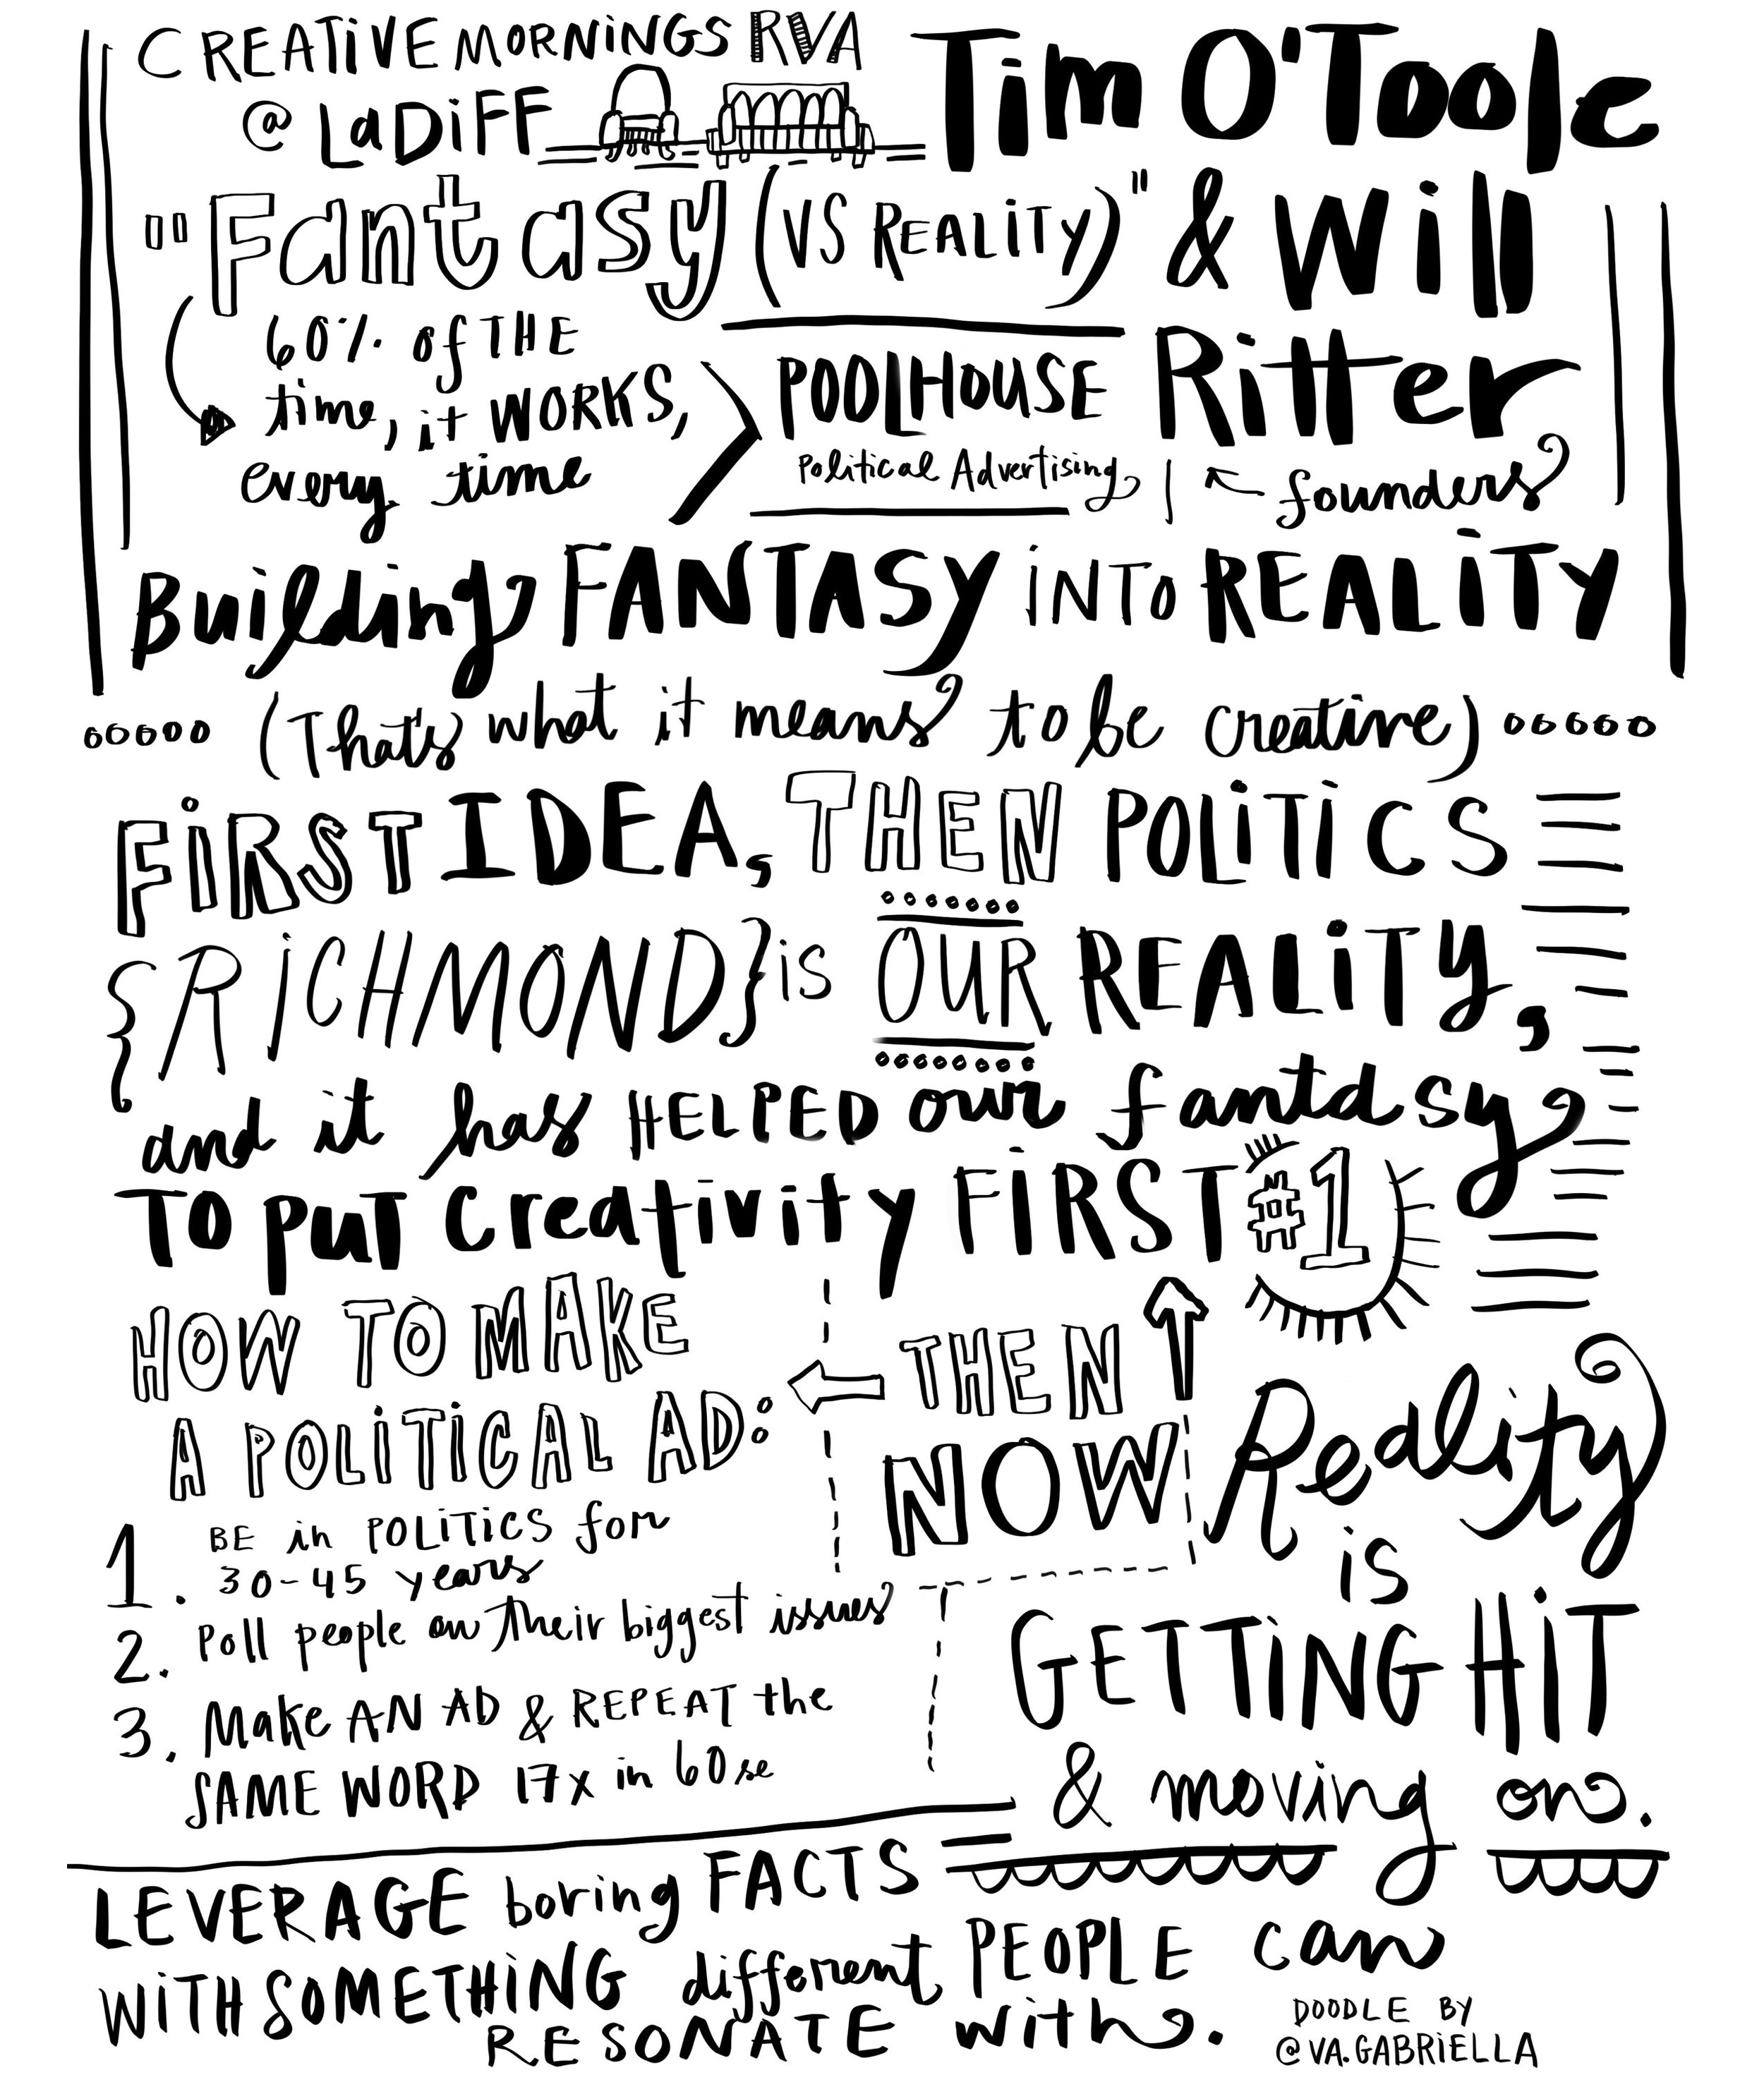 CREATIVE MORNINGS RVA
@ LaDiFF
Tim O'Toole
& Will
Ritter
← founders
"Fantasy (VS REALITY)"
60% of THE
time, it WORKS,
every time
POOLHOUSE
Political Advertising
Building FANTASY INTO REALITY
(That's what it means to be creative)
FIRST IDEA, THEN POLITICS
{RICHMOND} is OUR REALITY,
and it has HELPED our fantasy
TO PUT creativity FIRST #1
HOW TO MAKE
A POLITICAL AD:
THEN
NOW
1. BE in POLITICS for
30-45 years
2. Poll people on their biggest issues
3. Make AN AD & REPEAT the
SAME WORD 17x in 60 se
Reality
is
GETTING HIT
& moving on.
LEVERAGE boring FACTS
WITH SOMETHING different PEOPLE can
RESONATE with.
DOODLE BY
@VA.GABRIELLA